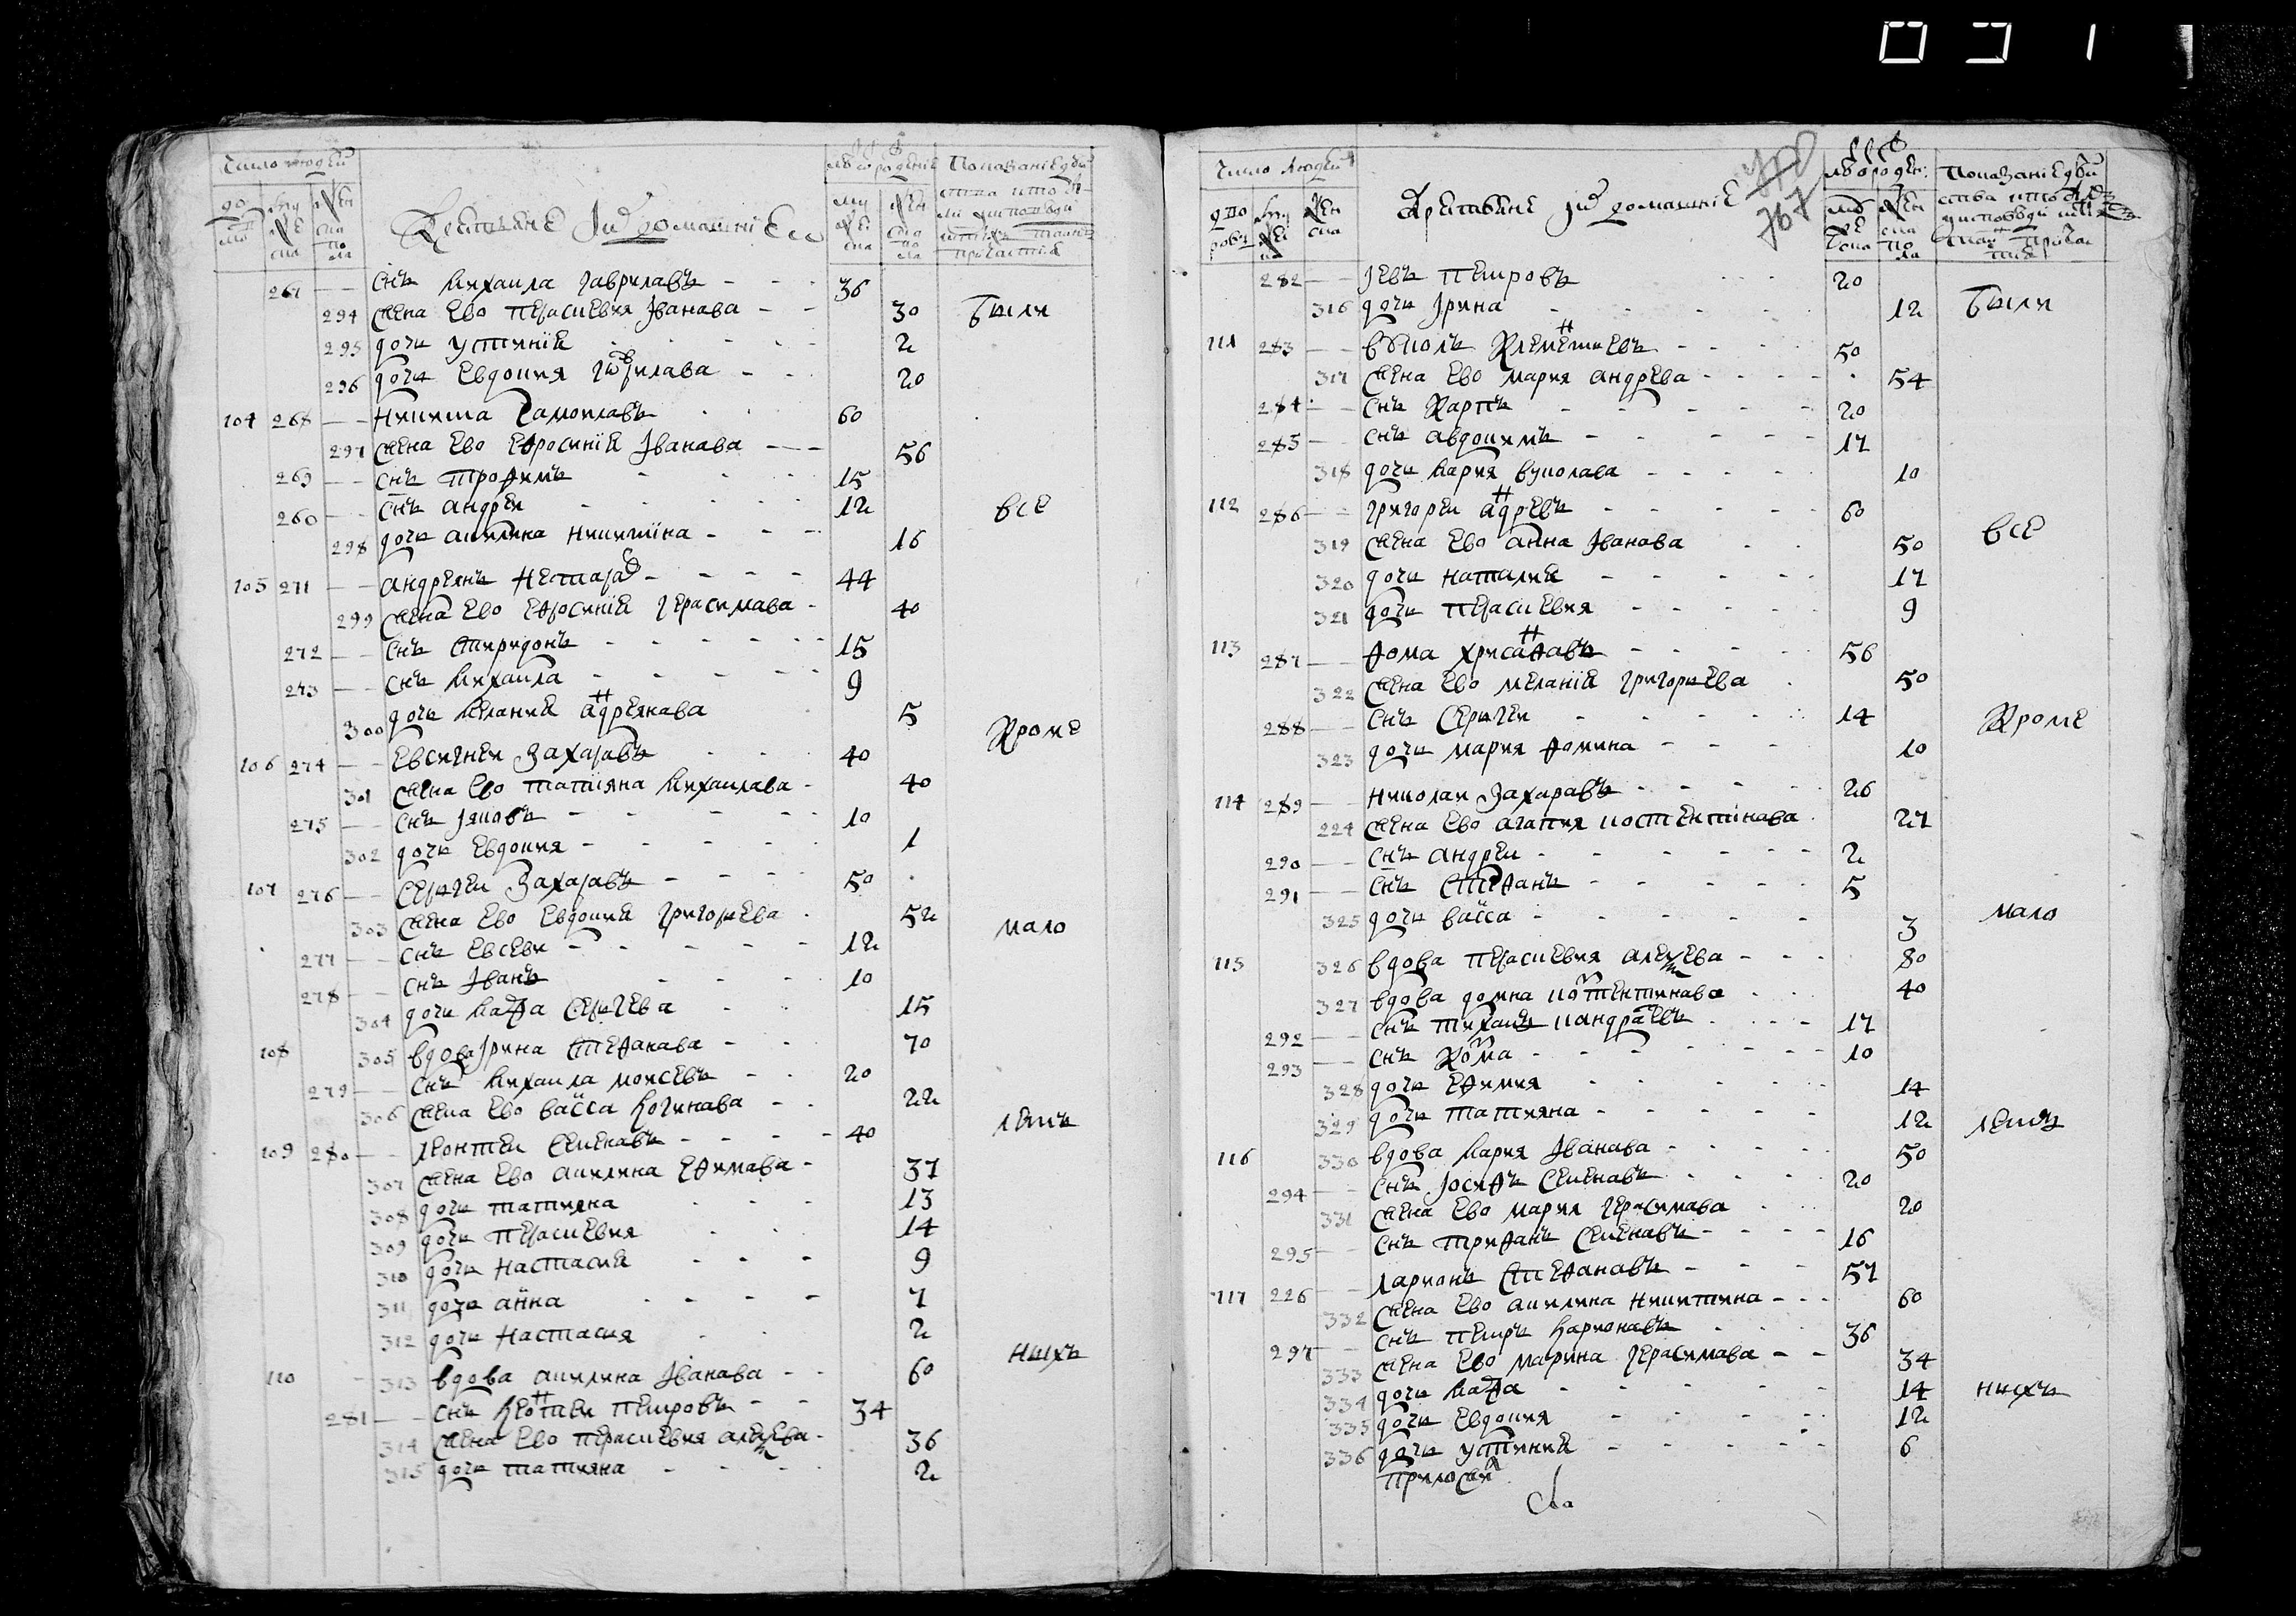 031
Число людей
Крестьяне и домашние их
267 — снъ Михаила Гаврилавъ - - - 36
294 жена ево Прасковия Іванава - - 30 были
295 дочь Устиния 2
296 дочь Евдокия Гаврилава - - 20
104 268 — Никита Самоилавъ 60
297 жена ево Ефросиния Іванава — 56
269 — снъ Трофимъ - - - 15
260 — снъ Андреи 12 все
298 дочь Акилина Никитина - - - 16
105 271 — Андреянъ Нестерав - - - - 44
299 жена ево Ефросиния Герасимава - 40
272 — снъ Спиридонъ - - - - - 15
273 — снъ Михаила - - - - - 9
300 дочь Мелания Адреянава 5
106 274 — Евсигнеи Захаравъ 40 Кроме
301 жена ево Татияна Михаилава - 40
275 — снъ Іяковъ - - - - - 10
302 дочь Евдокия - - - - 1
107 276 — Сергеи Захаравъ - - - - 50
303 жена ево Евдокия Григорьева 52 мало
277 — снъ Евсеви - - - - - 12
278 — снъ Іванъ - - - 10
304 дочь Марфа Сергеева - - 15
108 305 вдова Ірина Стефанава - - 70
279 — снъ Михаила Моисевъ - - 20
306 жена ево Васса Логинава - - 22 летъ
109 280 — Леонтеи Семенавъ - - - - 40
307 жена ево Акилина Ефимава - 37
308 дочь Татияна 13
309 дочь Прасковия 14
310 дочь Настасия - - - 9
311 дочь Анна - - - - 7
312 дочь Настасия - - 2
110 313 вдова Акилина Іванава - - 60 нихъ
281 — снъ Леонтеи Петровъ - - 34
314 жена ево Прасковия Алексева - 36
315 дочь Татияна - - - - 2
Число людей
Крестьяне и домашние
767
282 — Іевъ Петровъ 20
316 дочь Ірина - - - - - 12 были
111 283 — Вуколъ Клементиевъ - - - - 50
317 жена ево Мария Андрева - - - - 54
284 — снъ Карпъ - - - - - 20
285 — снъ Авдокимъ - - - - - 17
318 дочь Мария Вуколава - - - - 10
112 286 — Григореи Адревъ - - - - - 60
319 жена ево Анна Іванава - - 50 все
320 дочь Наталия - - - - - 17
321 дочь Прасковия - - - - - 9
113 287 — Фома Хрисанфавъ - - - - - 56
322 жена ево Мелания Григорьева - 50
288 — снъ Сергеи - - - - - 14 Кроме
323 дочь Мария Фомина - - - - 10
114 289 — Николаи Захаравъ - - - - 26
224 жена ево Агапия Костентинава 27
290 — снъ Андреи - - - - - - 2
291 — снъ Стефанъ - - - - - 5
325 дочь Васса - - - - - - 3 мало
115 326 вдова Прасковия Алексева - - - 80
327 вдова Домна Костентинава - - - 40
292 — снъ Тиханъ Кандравъ - - - - 17
293 — снъ Козма - - - - - - - 10
328 дочь Ефимия - - - - - 14
329 дочь Татияна - - - - - 12 летъ
116 330 вдова Мария Іванава - - - - - 50
294 — снъ Іосифъ Семенавъ - - - - 20
331 жена ево Мария Герасимава - - 20
295 — снъ Трифанъ Семенавъ - - - - 16
117 226 — Ларионъ Стефанавъ - - - 57
332 жена ево Акилина Никитина - - - 60
297 — снъ Петръ Ларионавъ - - - 36
333 жена ево Марина Герасимава - - 34
334 дочь Марфа - - - - - - 14 нихъ
335 дочь Евдокия - - - - - 12
336 дочь Устиния - - - - - 6